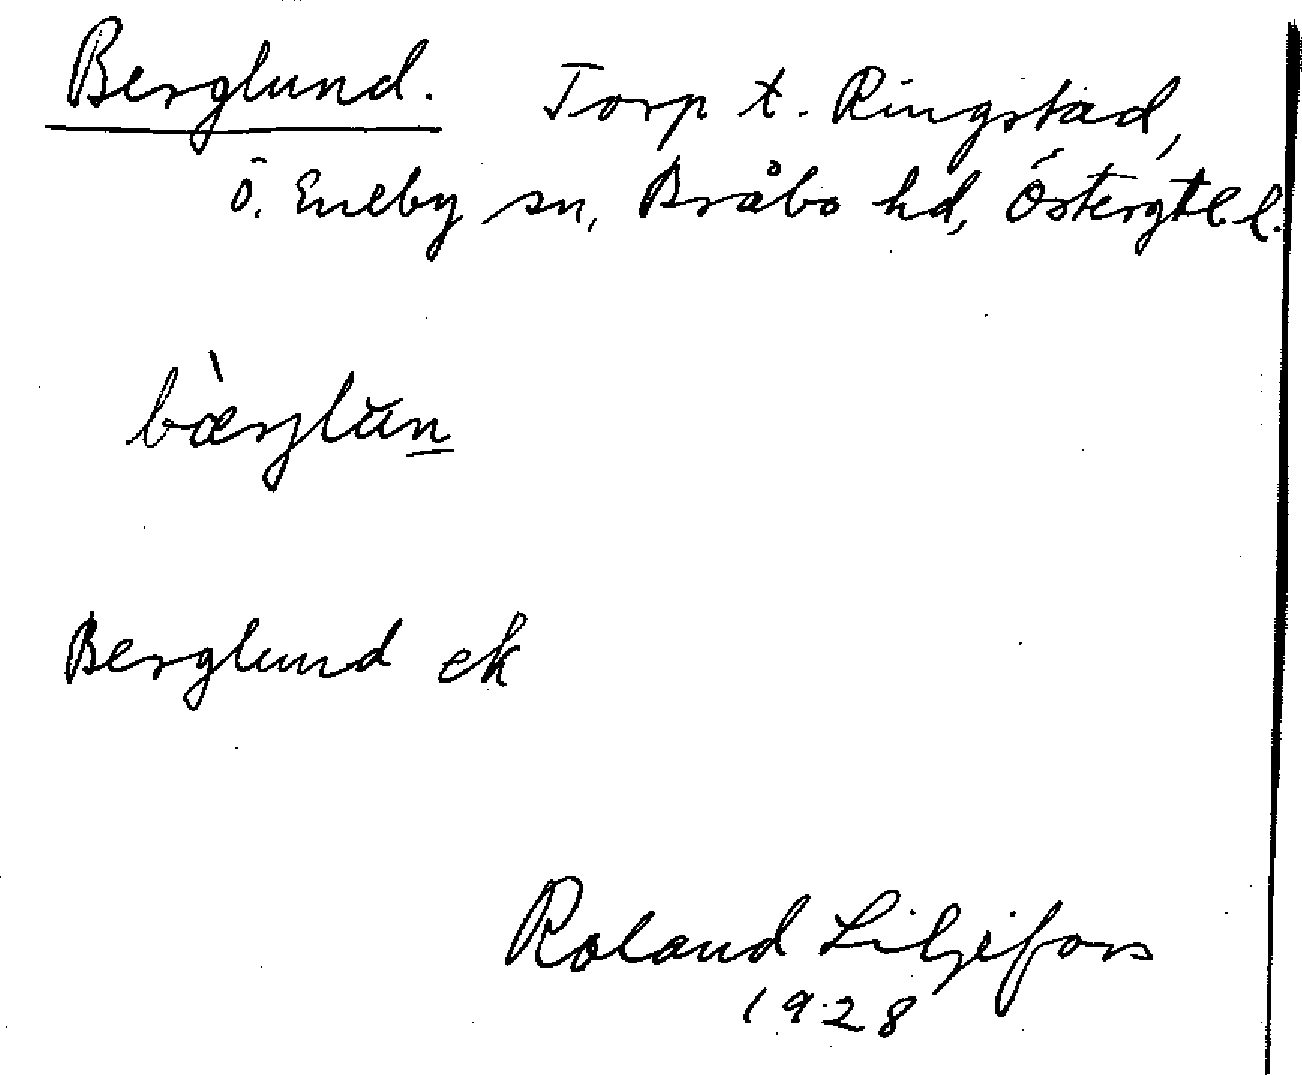 Berglund. Torp t. Ringstad,
Ö. Eneby sn, Bråbo hd, Östergtl. l.
bæ̀rjlŭn
Berglund ek
Roland Liljefors
1928